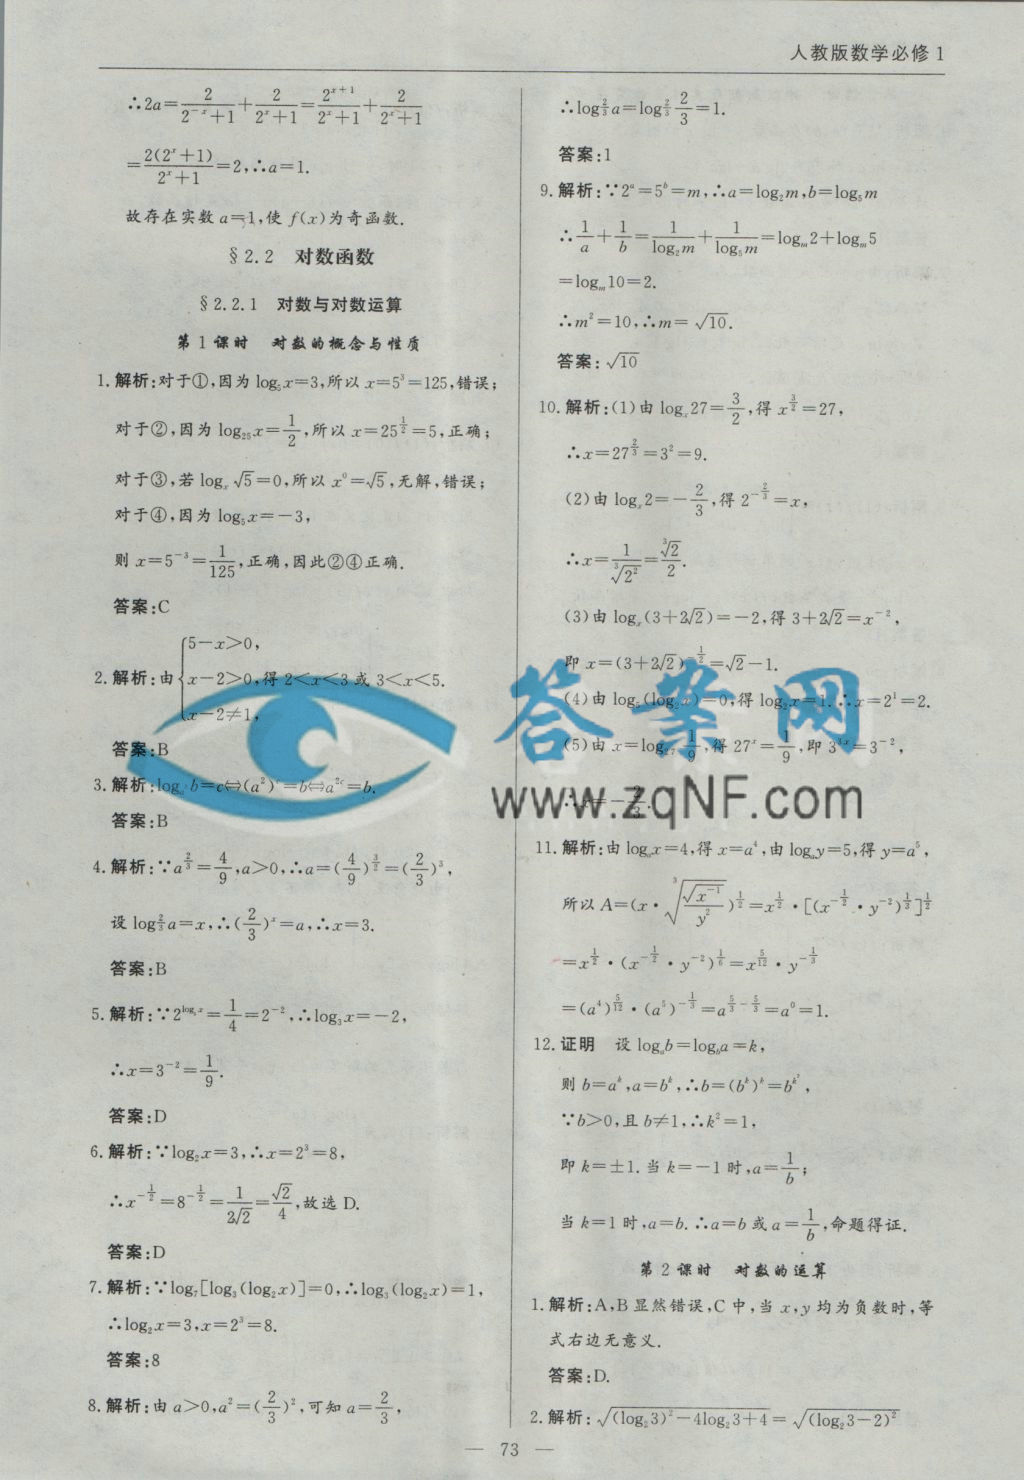 人教版数学必修1
∴2a=2/(2^{-x}+1)+2/(2^x+1)=2^{x+1}/(2^x+1)+2/(2^x+1)
=2(2^x+1)/(2^x+1)=2,∴a=1.
故存在实数a=1,使f(x)为奇函数.
§2.2 对数函数
§2.2.1 对数与对数运算
第1课时 对数的概念与性质
1.解析:对于①,因为log₅x=3,所以x=5³=125,错误;
对于②,因为log₂₅x=1/2,所以x=25^{1/2}=5,正确;
对于③,若logₓ√5=0,所以x⁰=√5,无解,错误;
对于④,因为log₅x=-3,
则x=5^{-3}=1/125,正确,因此②④正确.
答案:C
2.解析:由{5-x>0, x-2>0, x-2≠1, 得2<x<3或3<x<5.
答案:B
3.解析:log_{a²}b=c⇔(a²)^c=b⇔a^{2c}=b.
答案:B
4.解析:∵a^{2/3}=4/9,a>0,∴a=(4/9)^{3/2}=(2/3)³,
设log_{2/3}a=x,∴(2/3)^x=a,∴x=3.
答案:B
5.解析:∵2^{log₃x}=1/4=2^{-2},∴log₃x=-2,
∴x=3^{-2}=1/9.
答案:D
6.解析:∵log₂x=3,∴x=2³=8,
∴x^{-1/2}=8^{-1/2}=1/(2√2)=√2/4,故选D.
答案:D
7.解析:∵log₇[log₃(log₂x)]=0,∴log₃(log₂x)=1,
∴log₂x=3,x=2³=8.
答案:8
8.解析:由a>0,a²=(2/3)²,可知a=2/3,
∴log_{2/3}a=log_{2/3}2/3=1.
答案:1
9.解析:∵2^a=5^b=m,∴a=log₂m,b=log₅m
∴1/a+1/b=1/log₂m+1/log₅m=log_m2+log_m5
=log_m10=2.
∴m²=10,∴m=√10.
答案:√10
10.解析:(1)由logₓ27=3/2,得x^{3/2}=27,
∴x=27^{2/3}=3²=9.
(2)由logₓ2=-2/3,得2^{-2/3}=x,
∴x=1/∛(2²)=∛2/2.
(3)由logₓ(3+2√2)=-2,得3+2√2=x^{-2},
即x=(3+2√2)^{-1/2}=√2-1.
(4)由log₅(log₂x)=0,得log₂x=1.∴x=2¹=2.
(5)由x=log₂₇1/9,得27^x=1/9,即3^{3x}=3^{-2},
∴x=-2/3.
11.解析:由logₐx=4,得x=a⁴,由logₐy=5,得y=a⁵,
所以A=(x·∛(√(x^{-1})/y²))^{1/2}=x^{1/2}·[(x^{-1/2}·y^{-2})^{1/3}]^{1/2}
=x^{1/2}·(x^{-1/2}·y^{-2})^{1/6}=x^{5/12}·y^{-1/3}
=(a⁴)^{5/12}·(a⁵)^{-1/3}=a^{5/3-5/3}=a⁰=1.
12.证明 设logₐb=log_ba=k,
则b=a^k,a=b^k,∴b=(b^k)^k=b^{k²},
∵b>0,且b≠1,∴k²=1,
即k=±1.当k=-1时,a=1/b;
当k=1时,a=b.∴a=b或a=1/b,命题得证.
第2课时 对数的运算
1.解析:A,B显然错误,C中,当x,y均为负数时,等
式右边无意义.
答案:D.
2.解析:√((log₂3)²-4log₂3+4)=√((log₂3-2)²)
— 73 —
答案网
www.zqNF.com